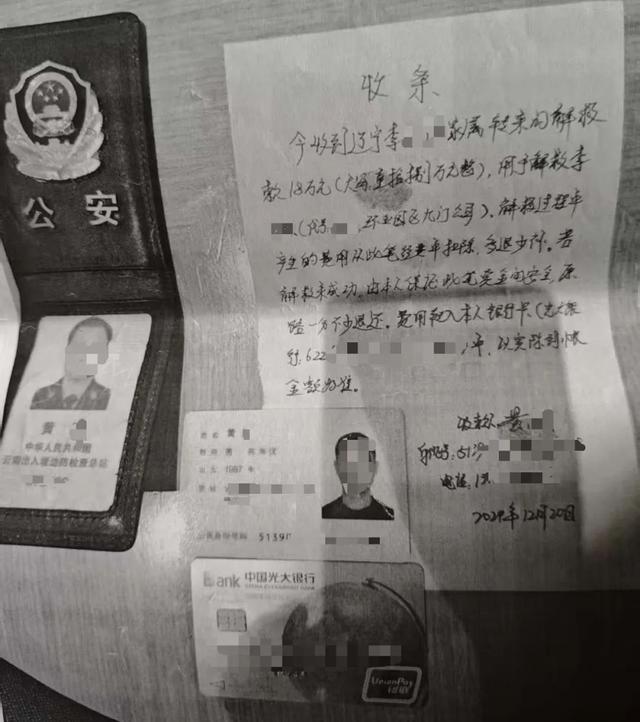 公安
黄
中华人民共和国
云南出入境边防检查总站
收条
今收到辽宁李 家属转来的解救
款18万元(大写:壹拾捌万元整),用于解救李
解救过程中
产生的费用从此笔经费中扣除,多退少补。若
解救未成功,由本人保证此笔资金的安全,原
路一分不少退还。费用转入本人银行卡(光大银
行:622 )中,以实际到帐
金额为准。
收款人:黄
身份号:5139
电话:1
2024年12月20日
姓名 黄
性别 男 民族 汉
出生 1987 年
住址
公民身份号码 5139
Bank 中国光大银行
CHINA EVERBRIGHT BANK
UnionPay
银联